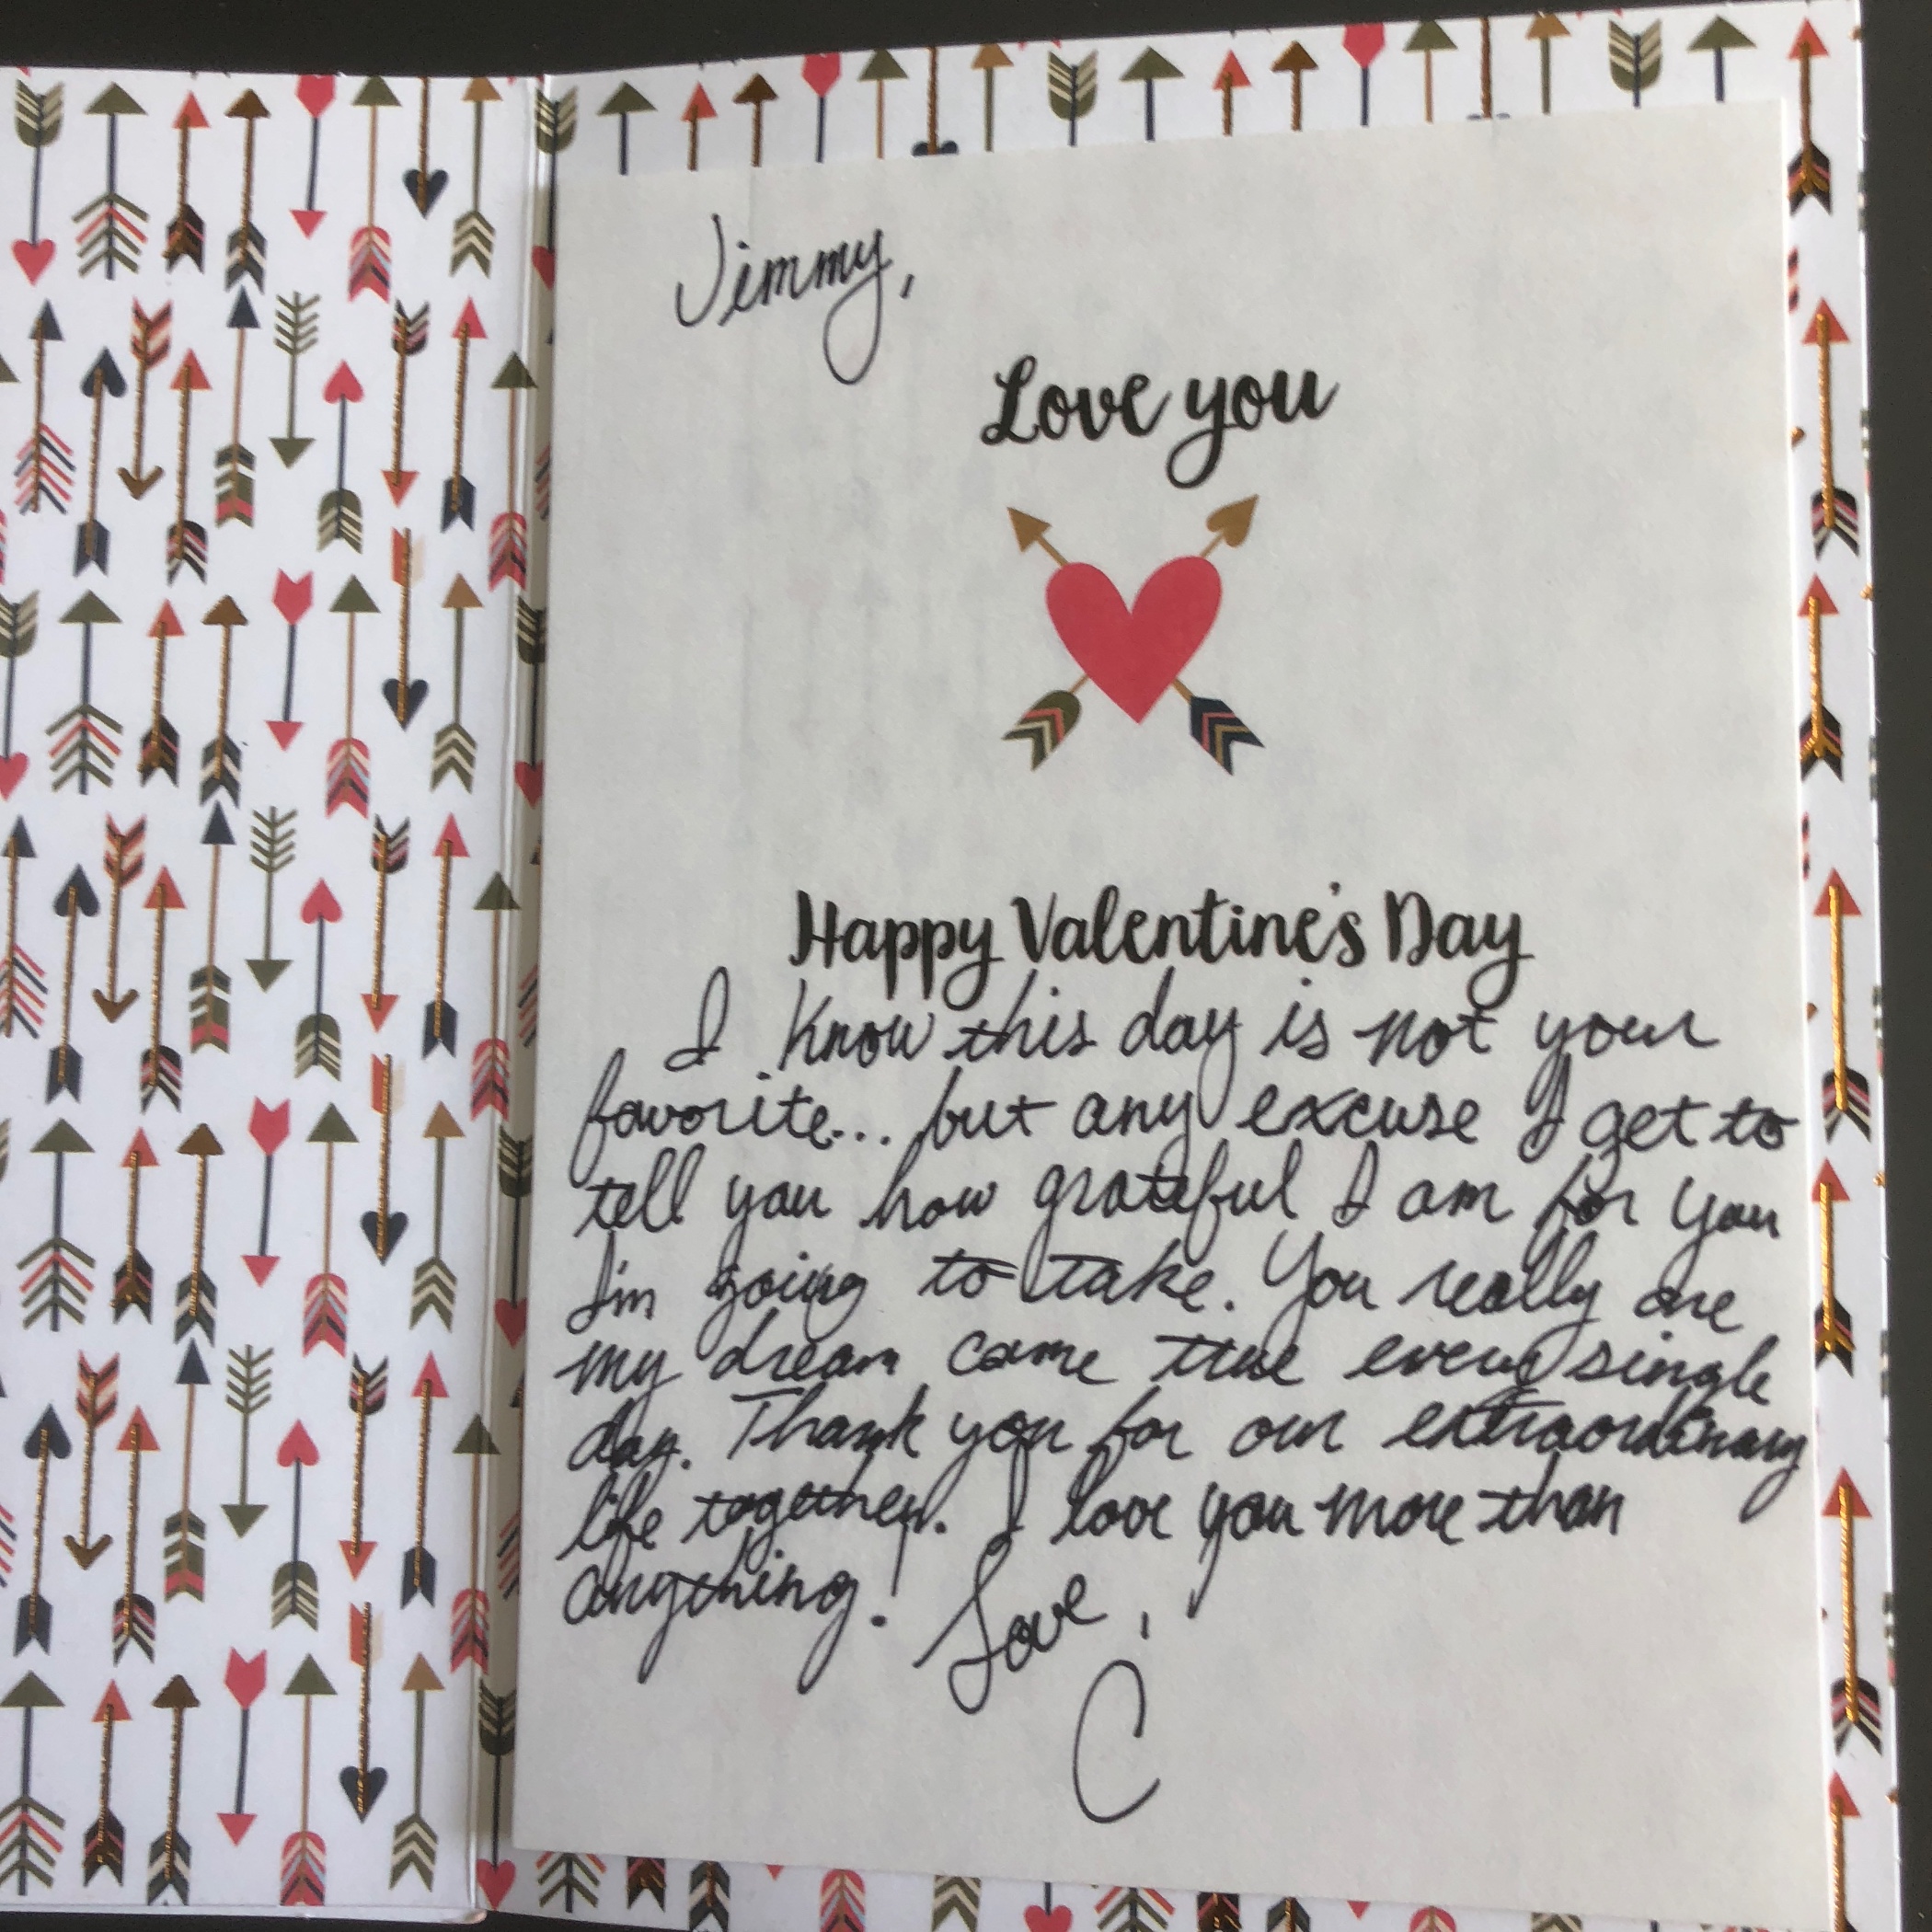 Jimmy,
Love you
Happy Valentine's Day
I know this day is not your
favorite... but any excuse I get to
tell you how grateful I am for you
I'm going to take. You really are
my dream come true every single
day. Thank you for our extraordinary
life together. I love you more than
anything! Love,
C